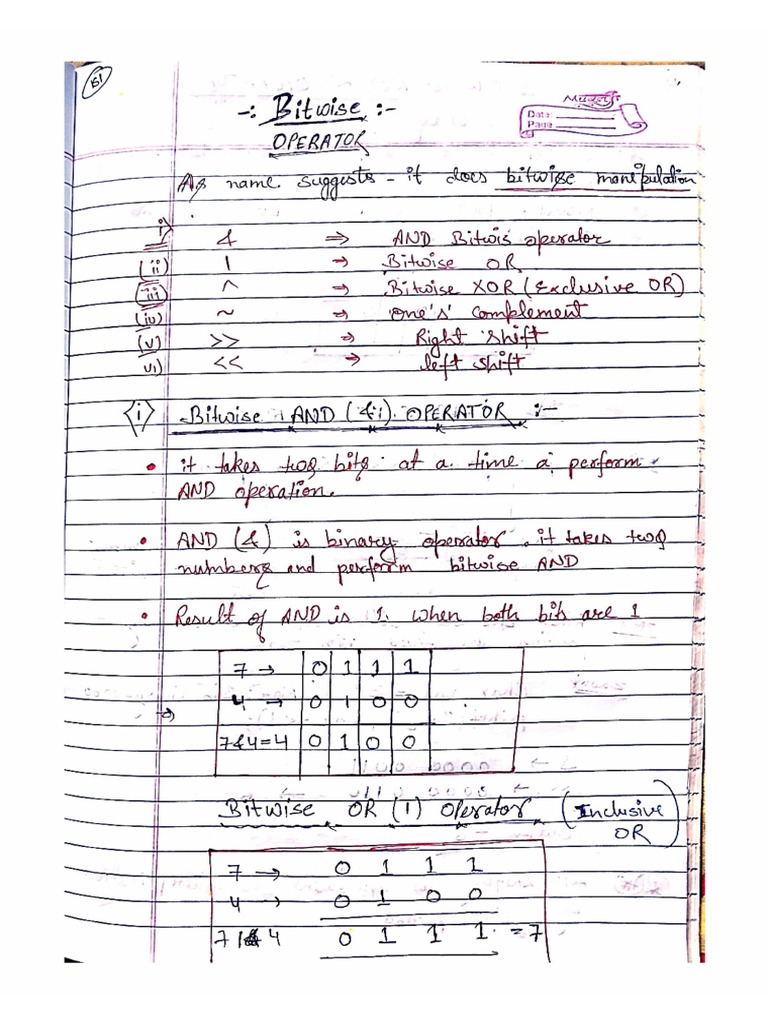 51
-: Bitwise :-
OPERATOR
Date
Page
As name suggests - it does bitwise manipulation
i) & ⇒ AND Bitwis operator
(ii) | → Bitwise OR
(iii) ^ → Bitwise XOR (Exclusive OR)
(iv) ~ → one's' complement
(v) >> ⇒ Right shift
vi) << → left shift
<i> Bitwise AND (&) OPERATOR :-
• it takes two bits at a time a perform
AND operation.
• AND (&) is binary operator. it takes two
numbers and perform bitwise AND
• Result of AND is 1. when both bits are 1
7 → 0 1 1 1
4 → 0 1 0 0
7&4=4 0 1 0 0
Bitwise OR (|) Operator (Inclusive
OR)
7 → 0 1 1 1
4 → 0 1 0 0
7 | 4 0 1 1 1 = 7